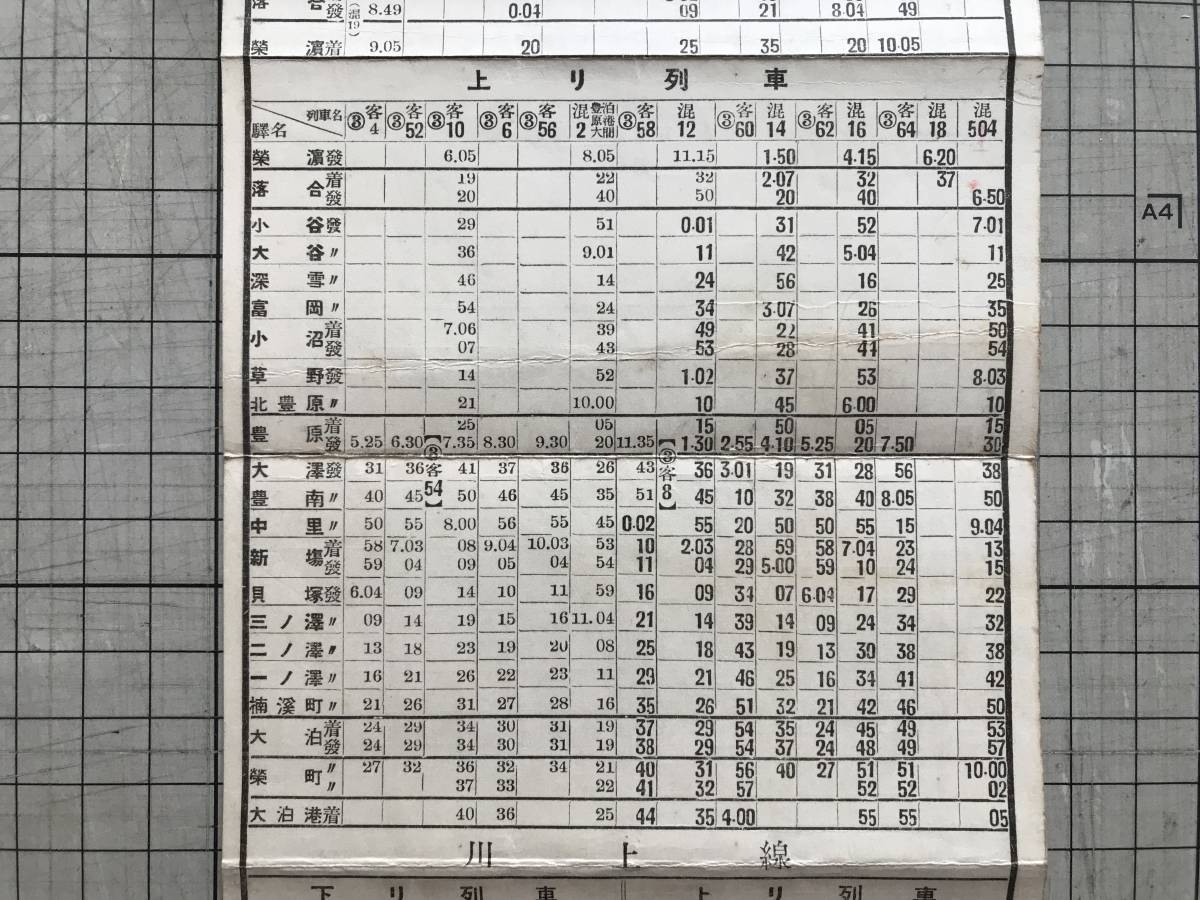 合發 8.49 0.04 09 21 8.04 49
(混19)
榮濱着 9.05 20 25 35 20 10.05
上リ列車
列車名 驛名 ③客4 ③客52 ③客10 ③客6 ③客56 混2 豊原大泊港間 ③客58 混12 ③客60 混14 ③客62 混16 ③客64 混18 混504
榮濱發 6.05 8.05 11.15 1.50 4.15 6.20
落合着 19 22 32 2.07 32 37
發 20 40 50 20 40 6.50
小谷發 29 51 0.01 31 52 7.01
大谷〃 36 9.01 11 42 5.04 11
深雪〃 46 14 24 56 16 25
富岡〃 54 24 34 3.07 26 35
小沼着 7.06 39 49 22 41 50
發 07 43 53 28 44 54
草野發 14 52 1.02 37 53 8.03
北豊原〃 21 10.00 10 45 6.00 10
豊原着 25 05 15 50 05 15
發 5.25 6.30 7.35 8.30 9.30 20 11.35 1.30 2.55 4.10 5.25 20 7.50 30
【③客54】
【③客8】
大澤發 31 36 41 37 36 26 43 36 3.01 19 31 28 56 38
豊南〃 40 45 50 46 45 35 51 45 10 32 38 40 8.05 50
中里〃 50 55 8.00 56 55 45 0.02 55 20 50 50 55 15 9.04
新場着 58 7.03 08 9.04 10.03 53 10 2.03 28 59 58 7.04 23 13
發 59 04 09 05 04 54 11 04 29 5.00 59 10 24 15
貝塚發 6.04 09 14 10 11 59 16 09 34 07 6.04 17 29 22
三ノ澤〃 09 14 19 15 16 11.04 21 14 39 14 09 24 34 32
二ノ澤〃 13 18 23 19 20 08 25 18 43 19 13 30 38 38
一ノ澤〃 16 21 26 22 23 11 29 21 46 25 16 34 41 42
楠溪町〃 21 26 31 27 28 16 35 26 51 32 21 42 46 50
大泊着 24 29 34 30 31 19 37 29 54 35 24 45 49 53
發 24 29 34 30 31 19 38 29 54 37 24 48 49 57
榮町〃 27 32 36 32 34 21 40 31 56 40 27 51 51 10.00
〃 37 33 22 41 32 57 52 52 02
大泊港着 40 36 25 44 35 4.00 55 55 05
川上線
下リ列車 上リ列車
A4